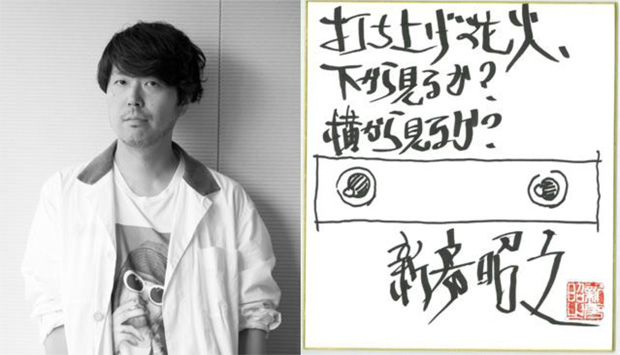 打ち上げ花火、
下から見るか？
横から見るか？
新房昭之